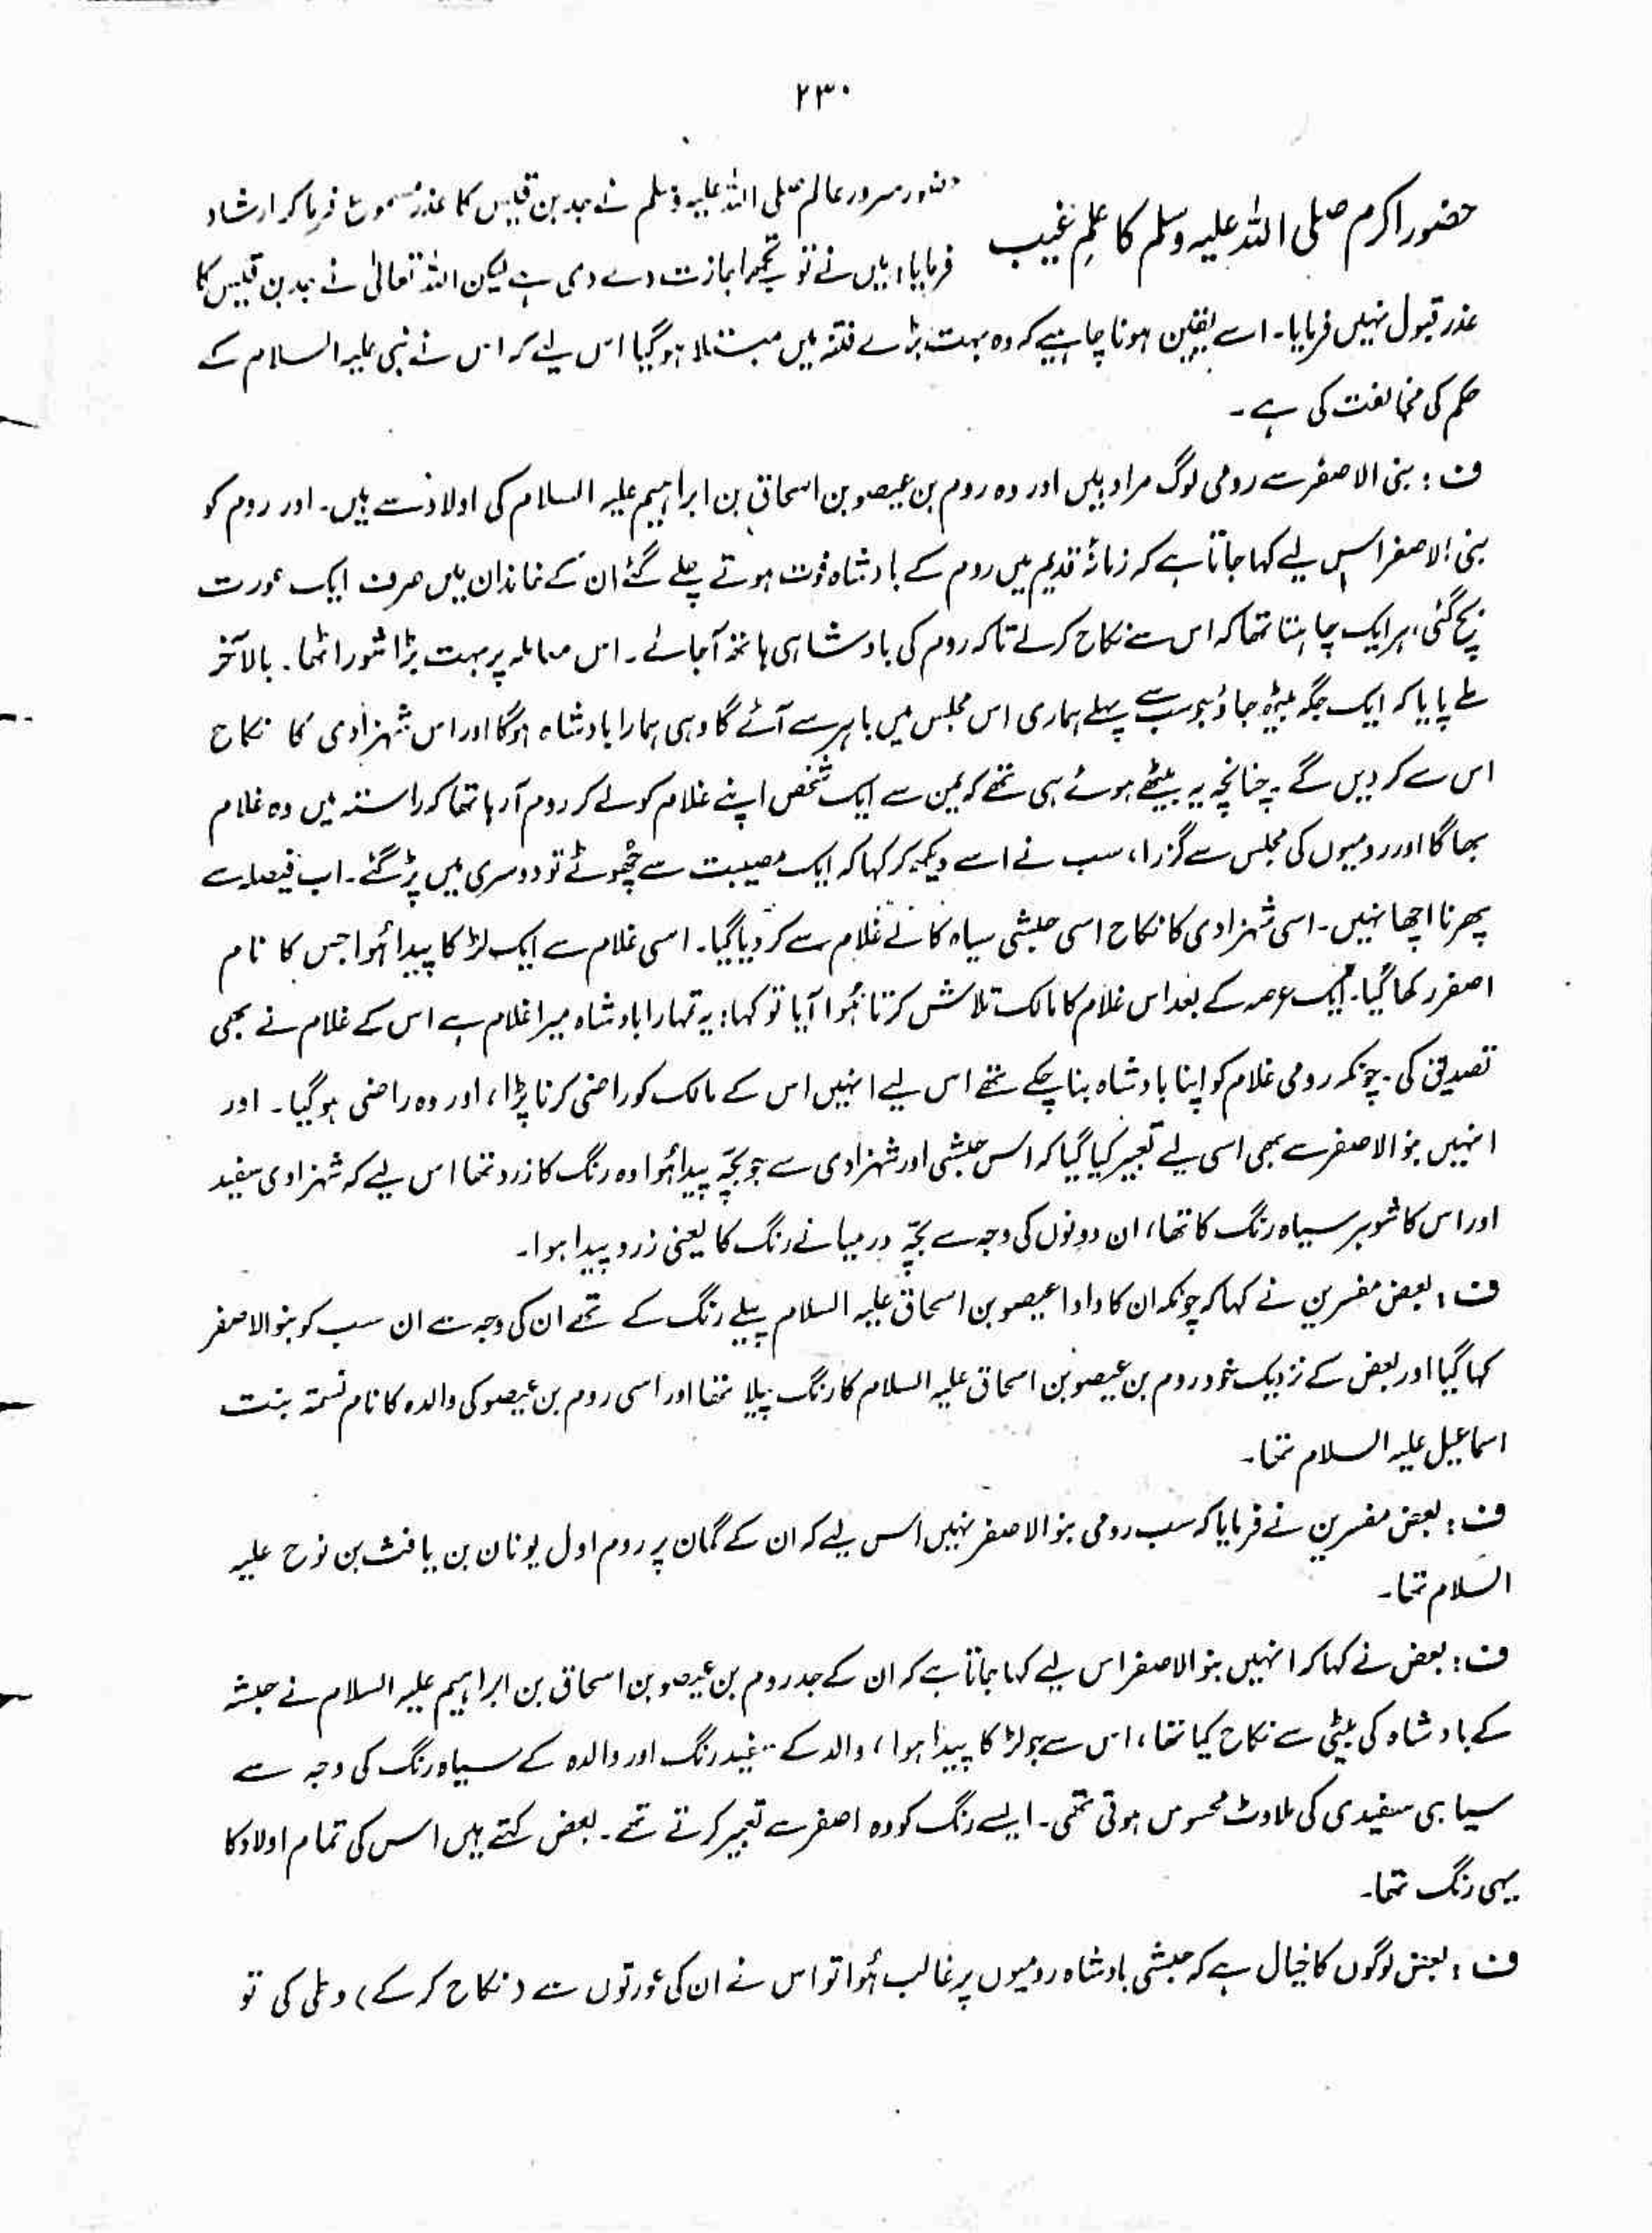 ۲۳۰
حضور اکرم صلی اللہ علیہ وسلم کا علمِ غیب
حضور سرور عالم صلی اللہ علیہ وسلم نے جد بن قیس کا عذر مسموع فرما کر ارشاد
فرمایا: میں نے تو تجھے اجازت دے دی ہے لیکن اللہ تعالیٰ نے جد بن قیس کا
عذر قبول نہیں فرمایا۔ اسے یقین ہونا چاہیے کہ وہ بہت بڑے فتنہ میں مبتلا ہو گیا اس لیے کہ اس نے نبی علیہ السلام کے
حکم کی مخالفت کی ہے۔
ف : بنی الاصفر سے رومی لوگ مراد ہیں اور وہ روم بن عیصو بن اسحاق بن ابراہیم علیہ السلام کی اولاد سے ہیں۔ اور روم کو
بنی الاصفر اس لیے کہا جاتا ہے کہ زمانۂ قدیم میں روم کے بادشاہ فوت ہوتے چلے گئے ان کے خاندان میں صرف ایک عورت
بچ گئی، ہر ایک چاہتا تھا کہ اس سے نکاح کرلے تاکہ روم کی بادشاہی ہاتھ آجائے۔ اس معاملہ پر بہت بڑا شور اٹھا۔ بالآخر
طے پایا کہ ایک جگہ بیٹھ جاؤ جو سب سے پہلے ہماری اس مجلس میں باہر سے آئے گا وہی ہمارا بادشاہ ہوگا اور اس شہزادی کا نکاح
اس سے کر دیں گے۔ چنانچہ یہ بیٹھے ہوئے ہی تھے کہ یمن سے ایک شخص اپنے غلام کو لے کر روم آرہا تھا کہ راستہ میں وہ غلام
بھاگا اور رومیوں کی مجلس سے گزرا، سب نے اسے دیکھ کر کہا کہ ایک مصیبت سے چھوٹے تو دوسری میں پڑ گئے۔ اب فیصلہ سے
پھرنا اچھا نہیں۔ اسی شہزادی کا نکاح اسی حبشی سیاہ کالے غلام سے کر دیا گیا۔ اسی غلام سے ایک لڑکا پیدا ہُوا جس کا نام
اصفر رکھا گیا۔ ایک عرصہ کے بعد اس غلام کا مالک تلاش کرتا ہُوا آیا تو کہا: یہ تمہارا بادشاہ میرا غلام ہے اس کے غلام نے بھی
تصدیق کی۔ چونکہ رومی غلام کو اپنا بادشاہ بنا چکے تھے اس لیے انہیں اس کے مالک کو راضی کرنا پڑا، اور وہ راضی ہو گیا۔ اور
انہیں بنو الاصفر سے بھی اسی لیے تعبیر کیا گیا کہ اس حبشی اور شہزادی سے جو بچّہ پیدا ہُوا وہ رنگ کا زرد تھا اس لیے کہ شہزادی سفید
اور اس کا شوہر سیاہ رنگ کا تھا، ان دونوں کی وجہ سے بچّہ درمیانے رنگ کا یعنی زرد پیدا ہوا۔
ف : بعض مفسرین نے کہا کہ چونکہ ان کا دادا عیصو بن اسحاق علیہ السلام پیلے رنگ کے تھے ان کی وجہ سے ان سب کو بنو الاصفر
کہا گیا اور بعض کے نزدیک خود روم بن عیصو بن اسحاق علیہ السلام کا رنگ پیلا تھا اور اسی روم بن عیصو کی والدہ کا نام نسمۃ بنت
اسماعیل علیہ السلام تھا۔
ف : بعض مفسرین نے فرمایا کہ سب رومی بنو الاصفر نہیں اس لیے کہ ان کے گمان پر روم اول یونان بن یافث بن نوح علیہ
السّلام تھا۔
ف : بعض نے کہا کہ انہیں بنو الاصفر اس لیے کہا جاتا ہے کہ ان کے جد روم بن عیصو بن اسحاق بن ابراہیم علیہ السلام نے حبشہ
کے بادشاہ کی بیٹی سے نکاح کیا تھا، اس سے جو لڑکا پیدا ہوا، والد کے سفید رنگ اور والدہ کے سیاہ رنگ کی وجہ سے
سیاہی سفیدی کی ملاوٹ محسوس ہوتی تھی۔ ایسے رنگ کو وہ اصفر سے تعبیر کرتے تھے۔ بعض کہتے ہیں اس کی تمام اولاد کا
یہی رنگ تھا۔
ف : بعض لوگوں کا خیال ہے کہ حبشی بادشاہ رومیوں پر غالب ہُوا تو اس نے ان کی عورتوں سے (نکاح کر کے) وطی کی تو